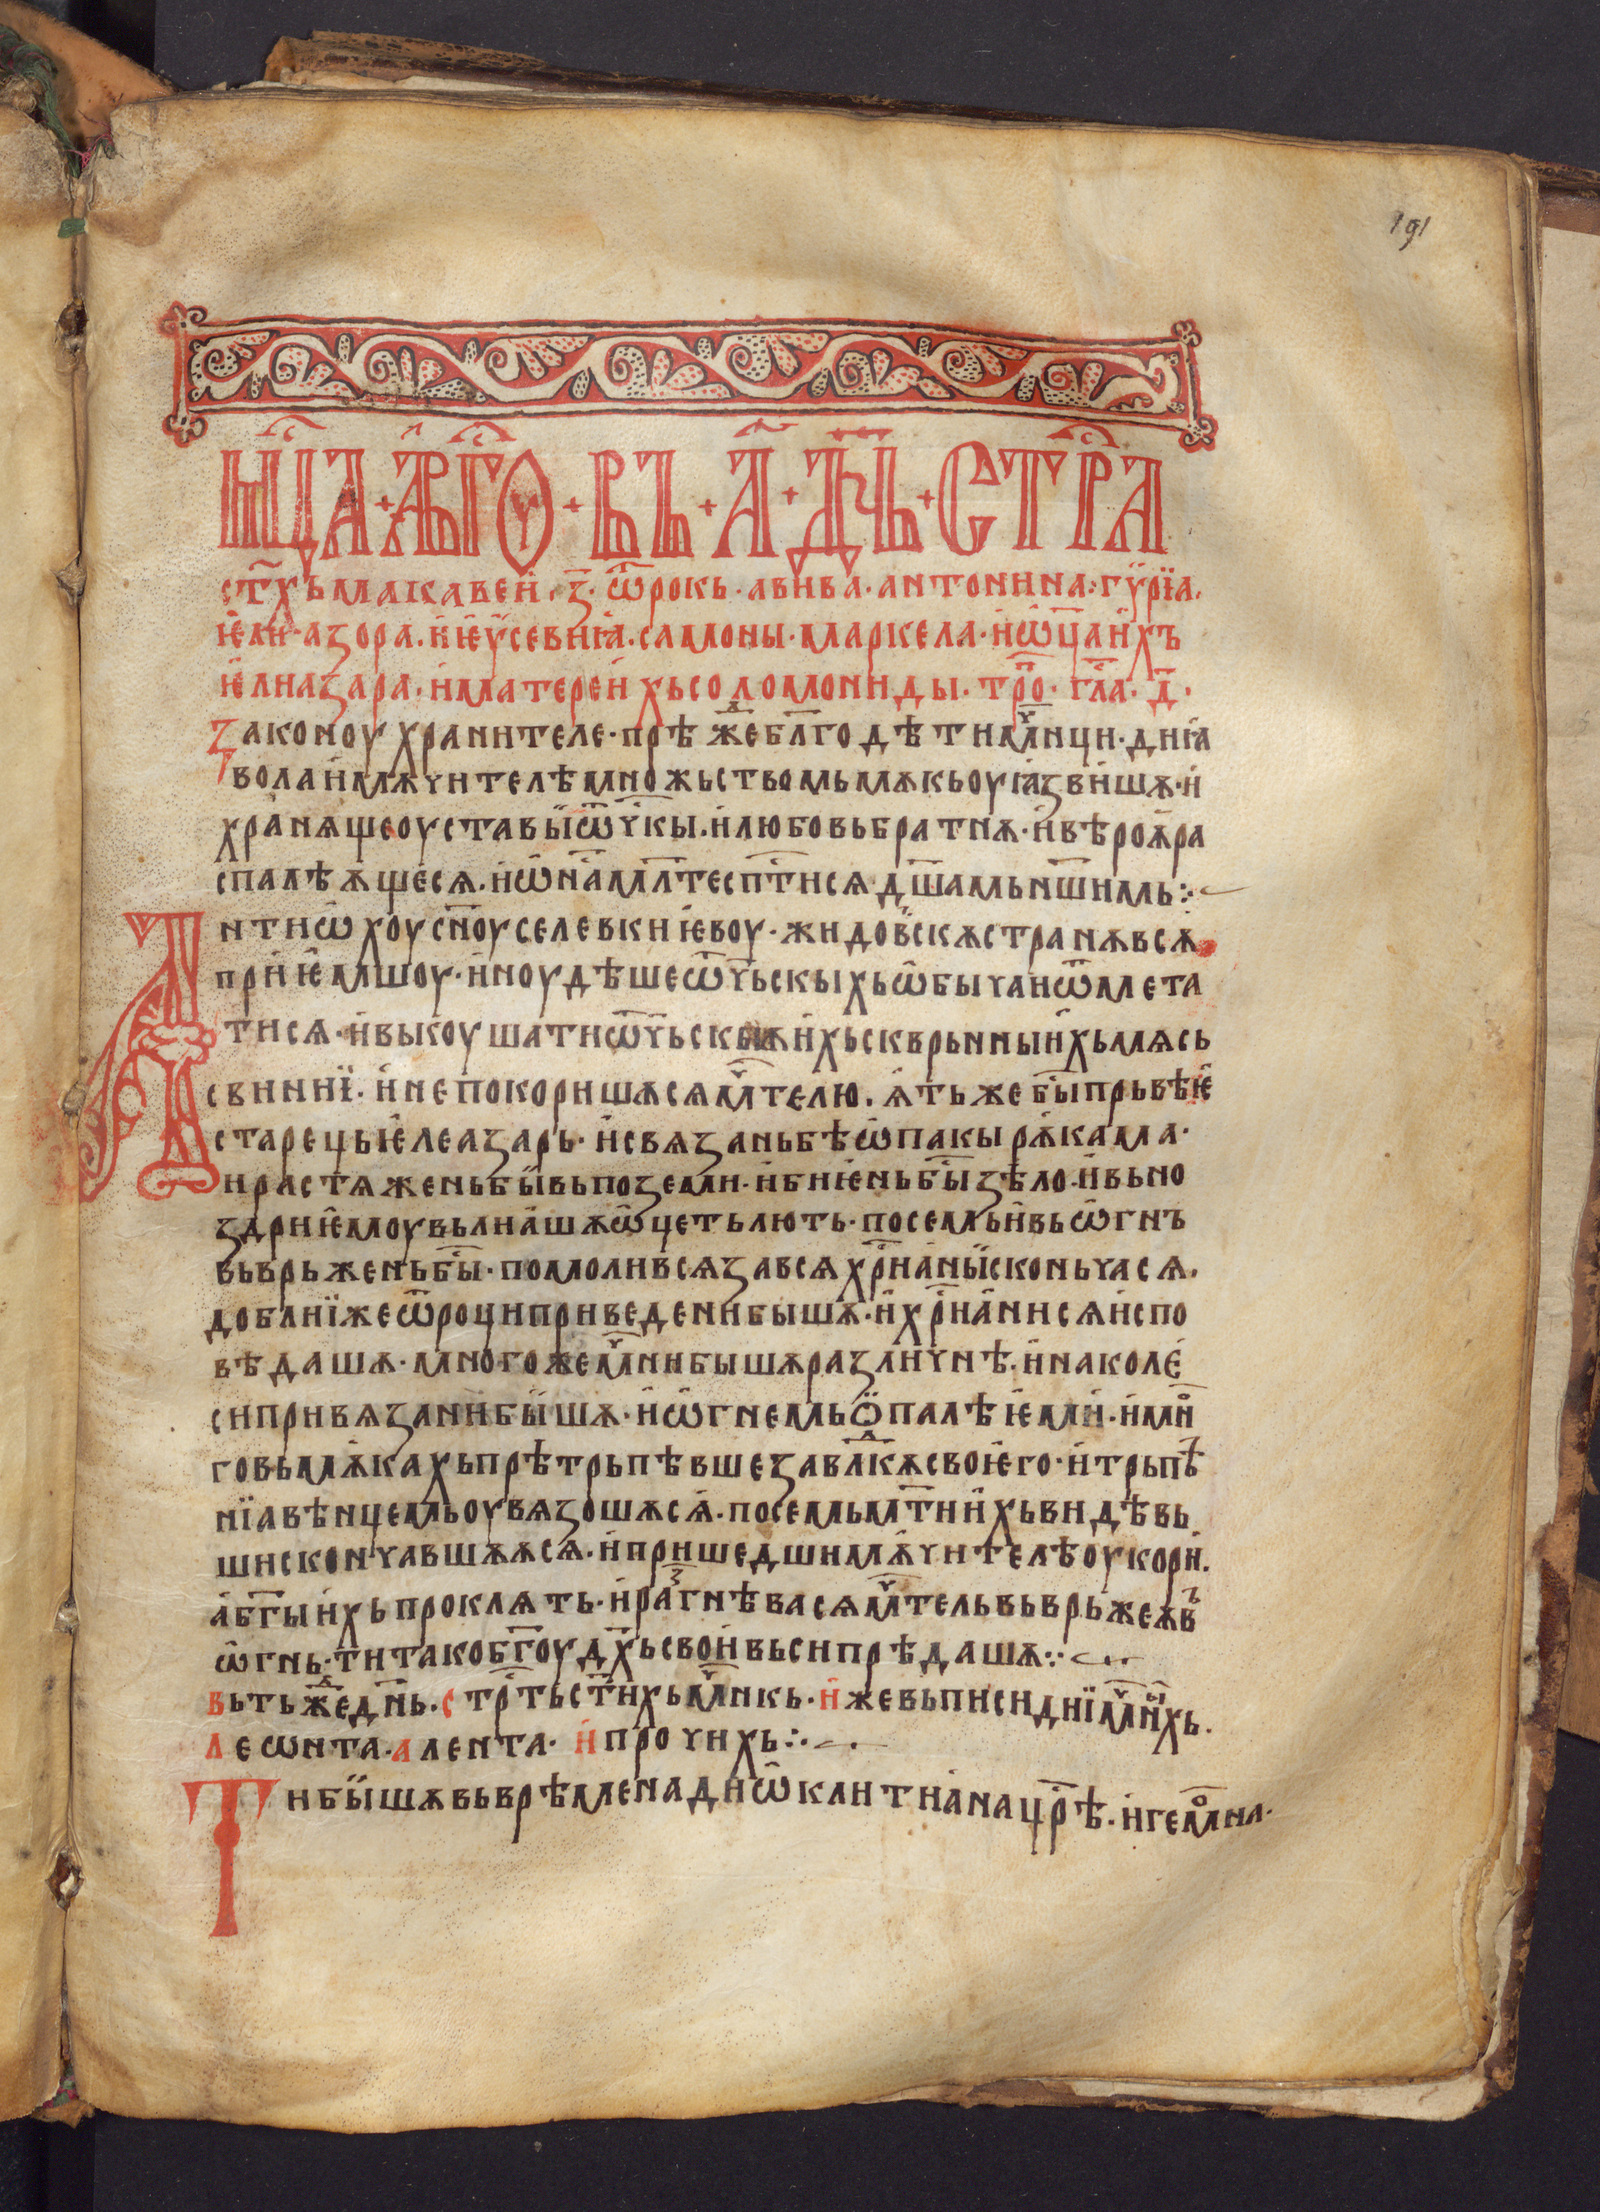 191
мⷭ҇ца · аѵⷢ҇го · въ · а҃ · дн҃ь · стрⷭ҇а
ст҃хъ макавеи · з҃ · ѿрокь · авива · антонина : гѵрїа ·
ѥли·азора · и ѥѵсевнꙗ · самоны · маркела · и ѿца ихъ
ѥлиазара · и матере ихь соломониды · трⷪ҇ · гла҃ · д҃ ·
Законоу хранителе · прѣжⷣе блг҃одѣти мⷱ҇нци · днꙗ
вола и мѫчителѣ множьствомь мѫкь оуꙗзвишѫ · и
хранѧще оуставы ѿчⷭ҇кы · и любовь братнѫ · и вѣроѫ ра
спалѣѫщесѧ · и ѡ на мл҃те сп҃тисѧ дш҃амь нш҃имь :·
Антиѡхоу сн҃оу селевкиѥвоу · жидовскѫ странѫ всѫ
приѥмшоу · и ноудѣше ѿчьскыхь ѡбычаи ѿмета
тисѧ · и выкоушати ѿчьскыи ихь скврьнныихь мѧсь
свиннї · и не покоришѫсѧ мⷱ҇телю · ѧть же быⷭ҇ прьвѣѥ
старець ѥлеазарь · и свѧзань бѣ ѡпакы рѫкама ·
и растѧжень бывь по земли · и биѥнь быⷭ҇ зѣло · и вь но
здри ѥмоу вьлиашѫ ѡцеть лють · по семь и вь ѡгнъ
вьврьжень быⷭ҇ · помоливсѧ за всѧ хрⷭ҇тианы исконьчасѧ ·
доблиї же ѿроци приведени бышѫ · и хрⷭ҇тиани сѧ испо
вѣдашѫ · много же мⷱ҇ни бышѫ различнѣ · и на коле
си привѧзани бышѫ · и ѡгнемь ѡпалѣѥми · и мнⷪ҇
говь мѫкахь прѣтрьпѣвше за влⷣкѫ своѥго · и трьпѣ
нїа вѣнцемь оувѧзошѫсѧ · по семь мт҃и ихь видѣвь
ши скончавшѫѫсѧ · и пришедши мѫчителѣ оукори ·
а бг҃ы ихь проклѧть · и раⷥгнѣвасѧ мⷱ҇тель вьврьже ѫ въ
ѡгнь · ти тако бг҃оу дх҃ь свои вьси прѣдашѫ :·
вь тьжⷣе дн҃ь · стрⷭ҇ть ст҃ихь мⷱ҇никь · иже вь писидиї мⷱ҇ныхь ·
леѡнта · алента · и прочихь :·
Ти бышѫ вь врѣмена диѡклитиана црⷭ҇ѣ · и гемⷪ҇на ·